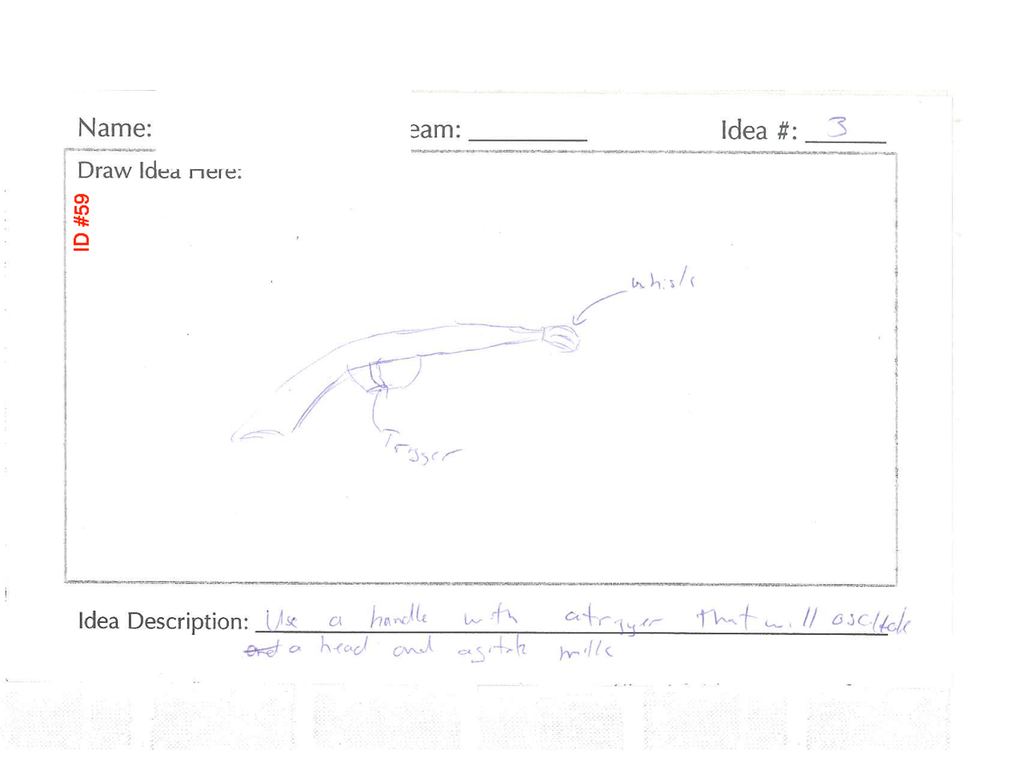 Name:
eam:
Idea #: 3
Draw Idea Here:
ID #59
whisk
Trigger
Idea Description: Use a handle with a trigger that will oscillate
and a head and agitate milk